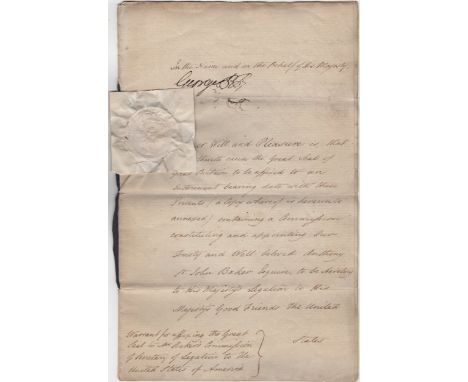 In the Name and on the Behalf of His Majesty
George P R
Our Will and Pleasure is that
cause the Great Seal of
Great Britain to be affixed to an
Instrument bearing date with these
Presents (a Copy whereof is hereunto
annexed) containing a Commission
constituting and appointing Our
Trusty and Well beloved Anthony
St John Baker Esquire, to be Secretary
to His Majesty's Legation to His
Majesty's Good Friends the United
States
Warrant for affixing the Great
Seal to Mr Baker's Commission
of Secretary of Legation to the
United States of America